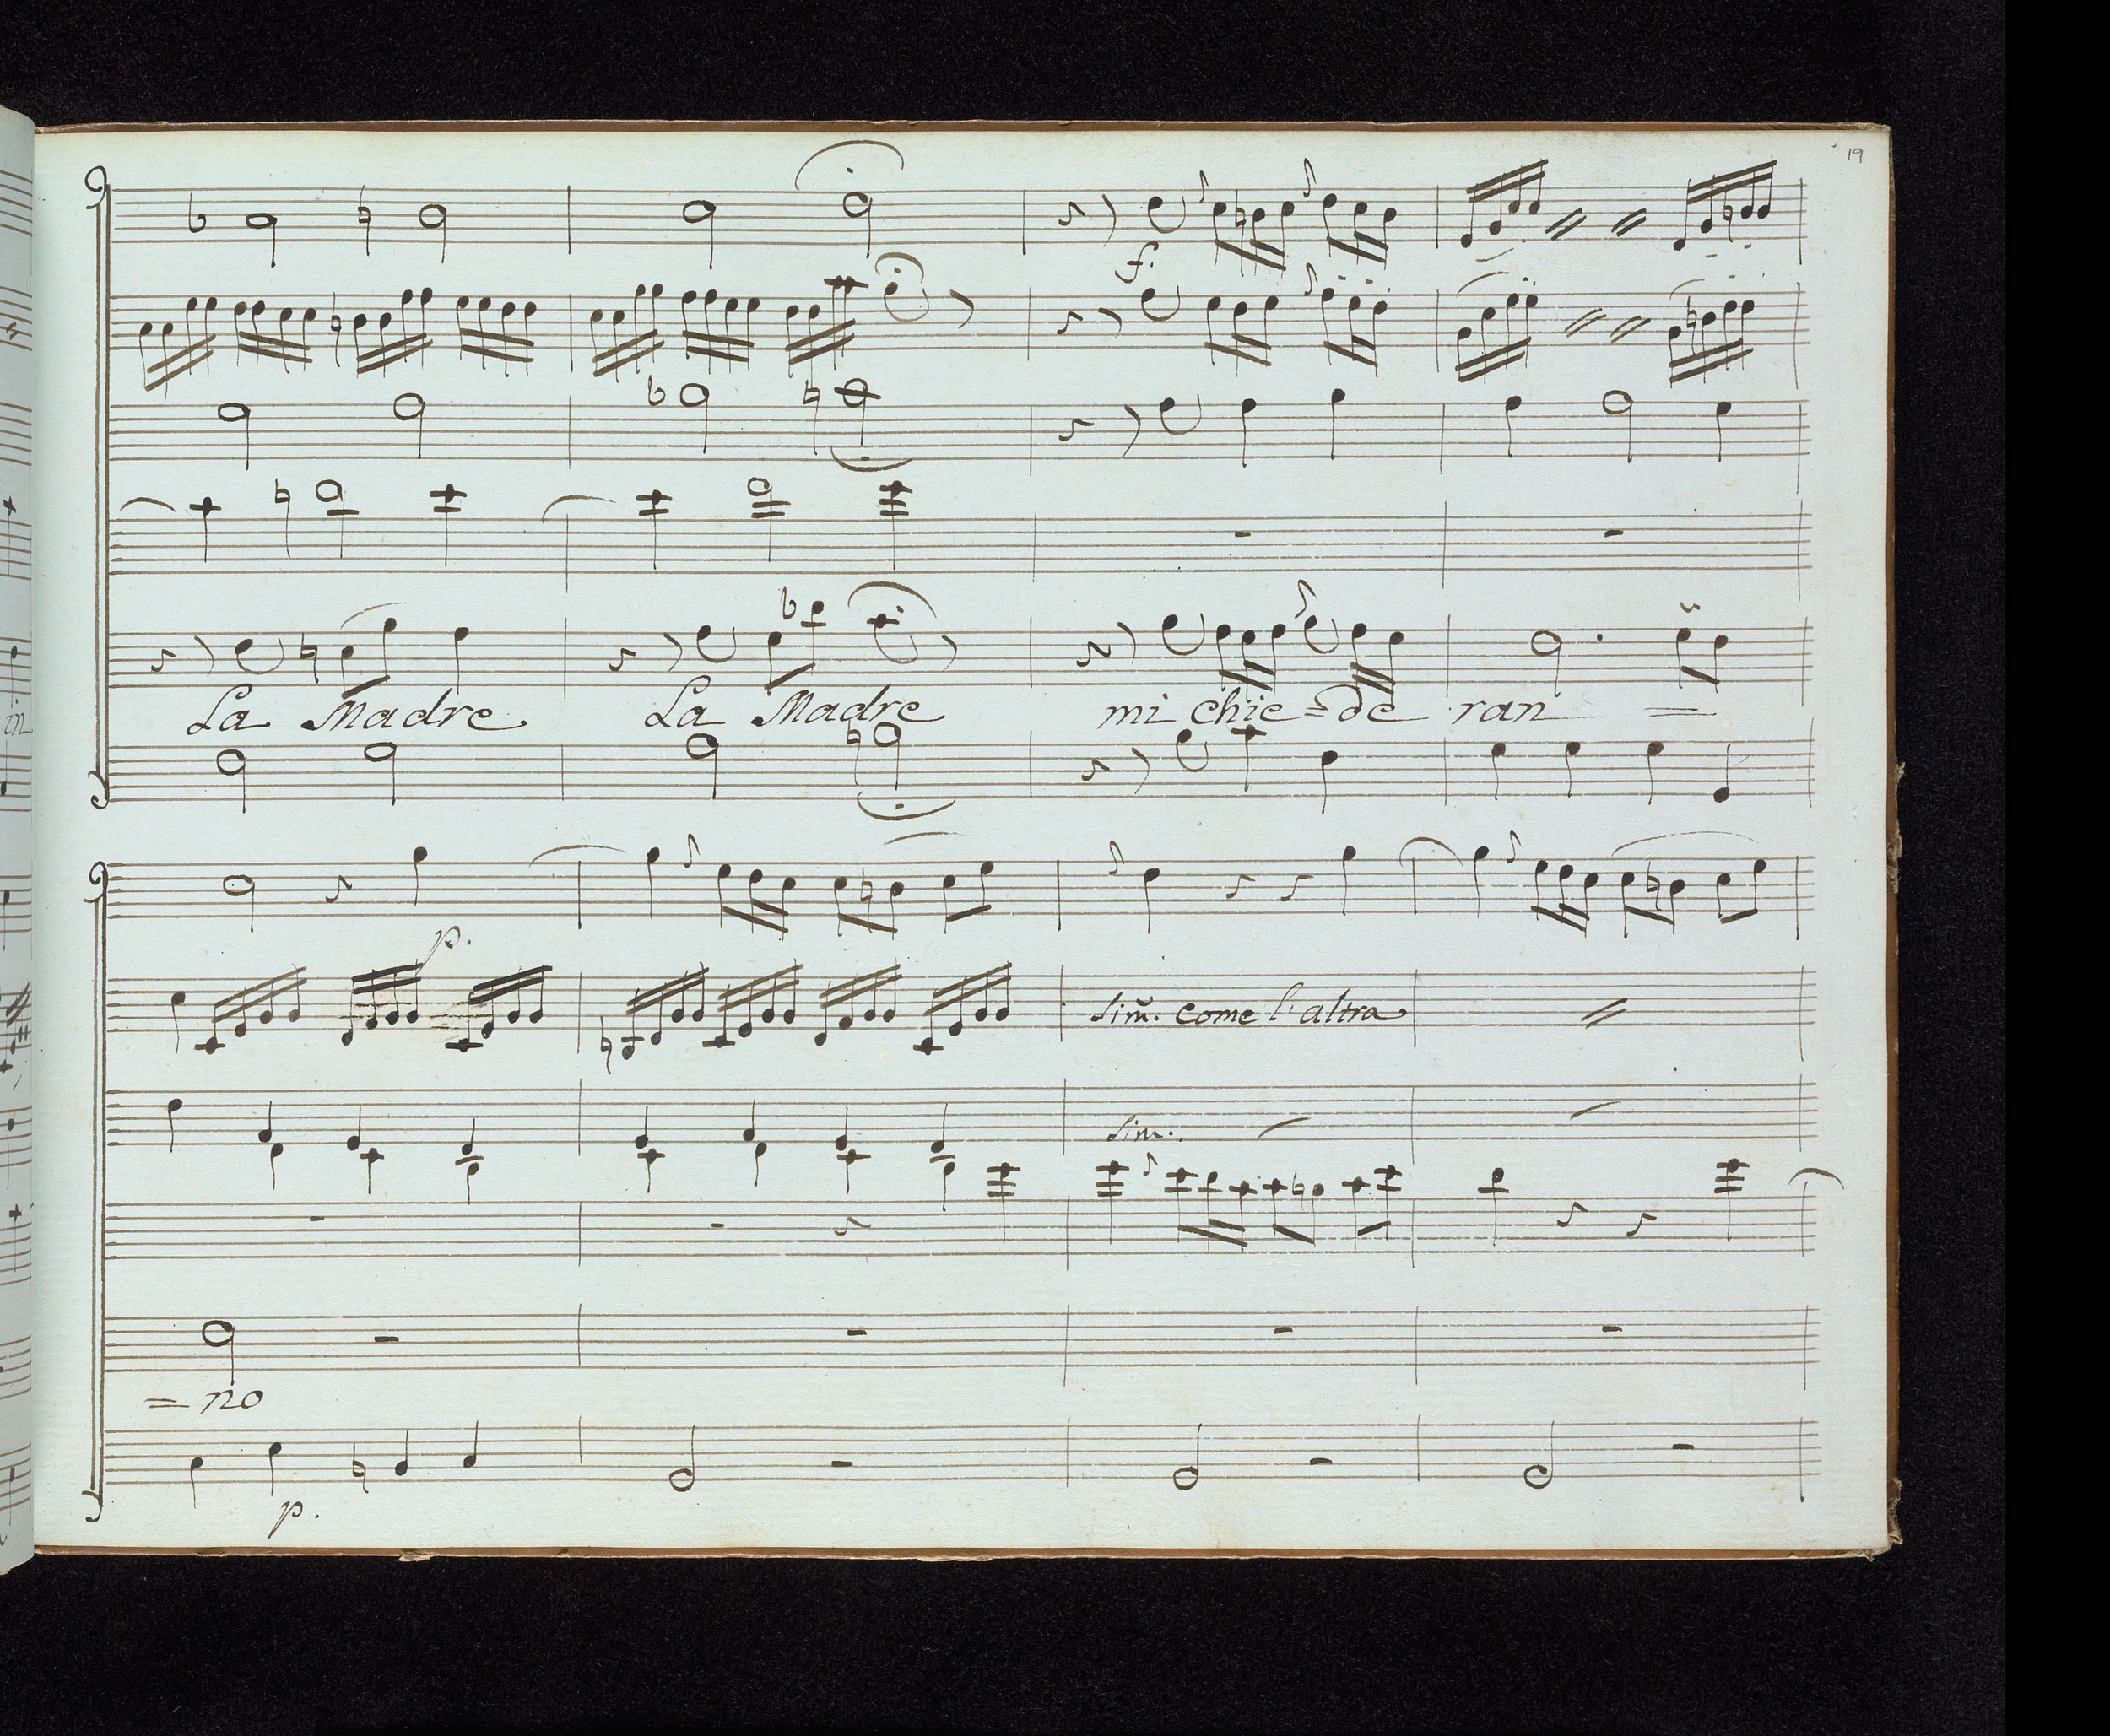 19
f.
La Madre La Madre mi chie=de ran =
p.
sim̃. come l'altra
sim.
= no
p.